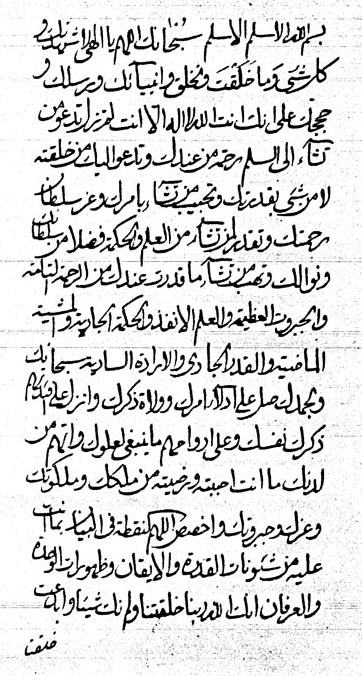 بسم الله الاسلم الاسلم سبحانك اللهم يا الهي اشهدك و
كل شيء وما خلقت وتخلق وانبيائك ورسلك و
حججك على انك انت الله لا اله الا انت لم تزل تدعو من
تشاء الى السلم برحمة من عندك وتدعو اليك من خلقته
لا من شيء بقدرتك وتجيب من تشاء بامرك وعز سلطان
رحمتك وتقدر لمن تشاء من العلم والحكمة فضلا من سلطانك
ونوالك وتهب من تشاء ما قدرت عندك من الرحمة التامة
والجبروت العظيمة والعلم الانفذ والحكمة الجارية والمشية
الماضية والقدر الجاري والارادة السارية سبحانك
وبحمدك صل على ادلاء امرك وولاة ذكرك وانزل على
ذكرك نفسك وعلى ارواحهم ما ينبغي لعلوك واتهم من
لدنك ما انت احببته ورضيته من ملكك وملكوتك
وعزك وجبروتك واخصص اللهم نقطة في البيان بما انت
عليه من شئونات القدرة والايقان وظهورات الوحدة
والعرفان انك الله ربنا خلقتنا ولم نك شيئا
خلقتنا